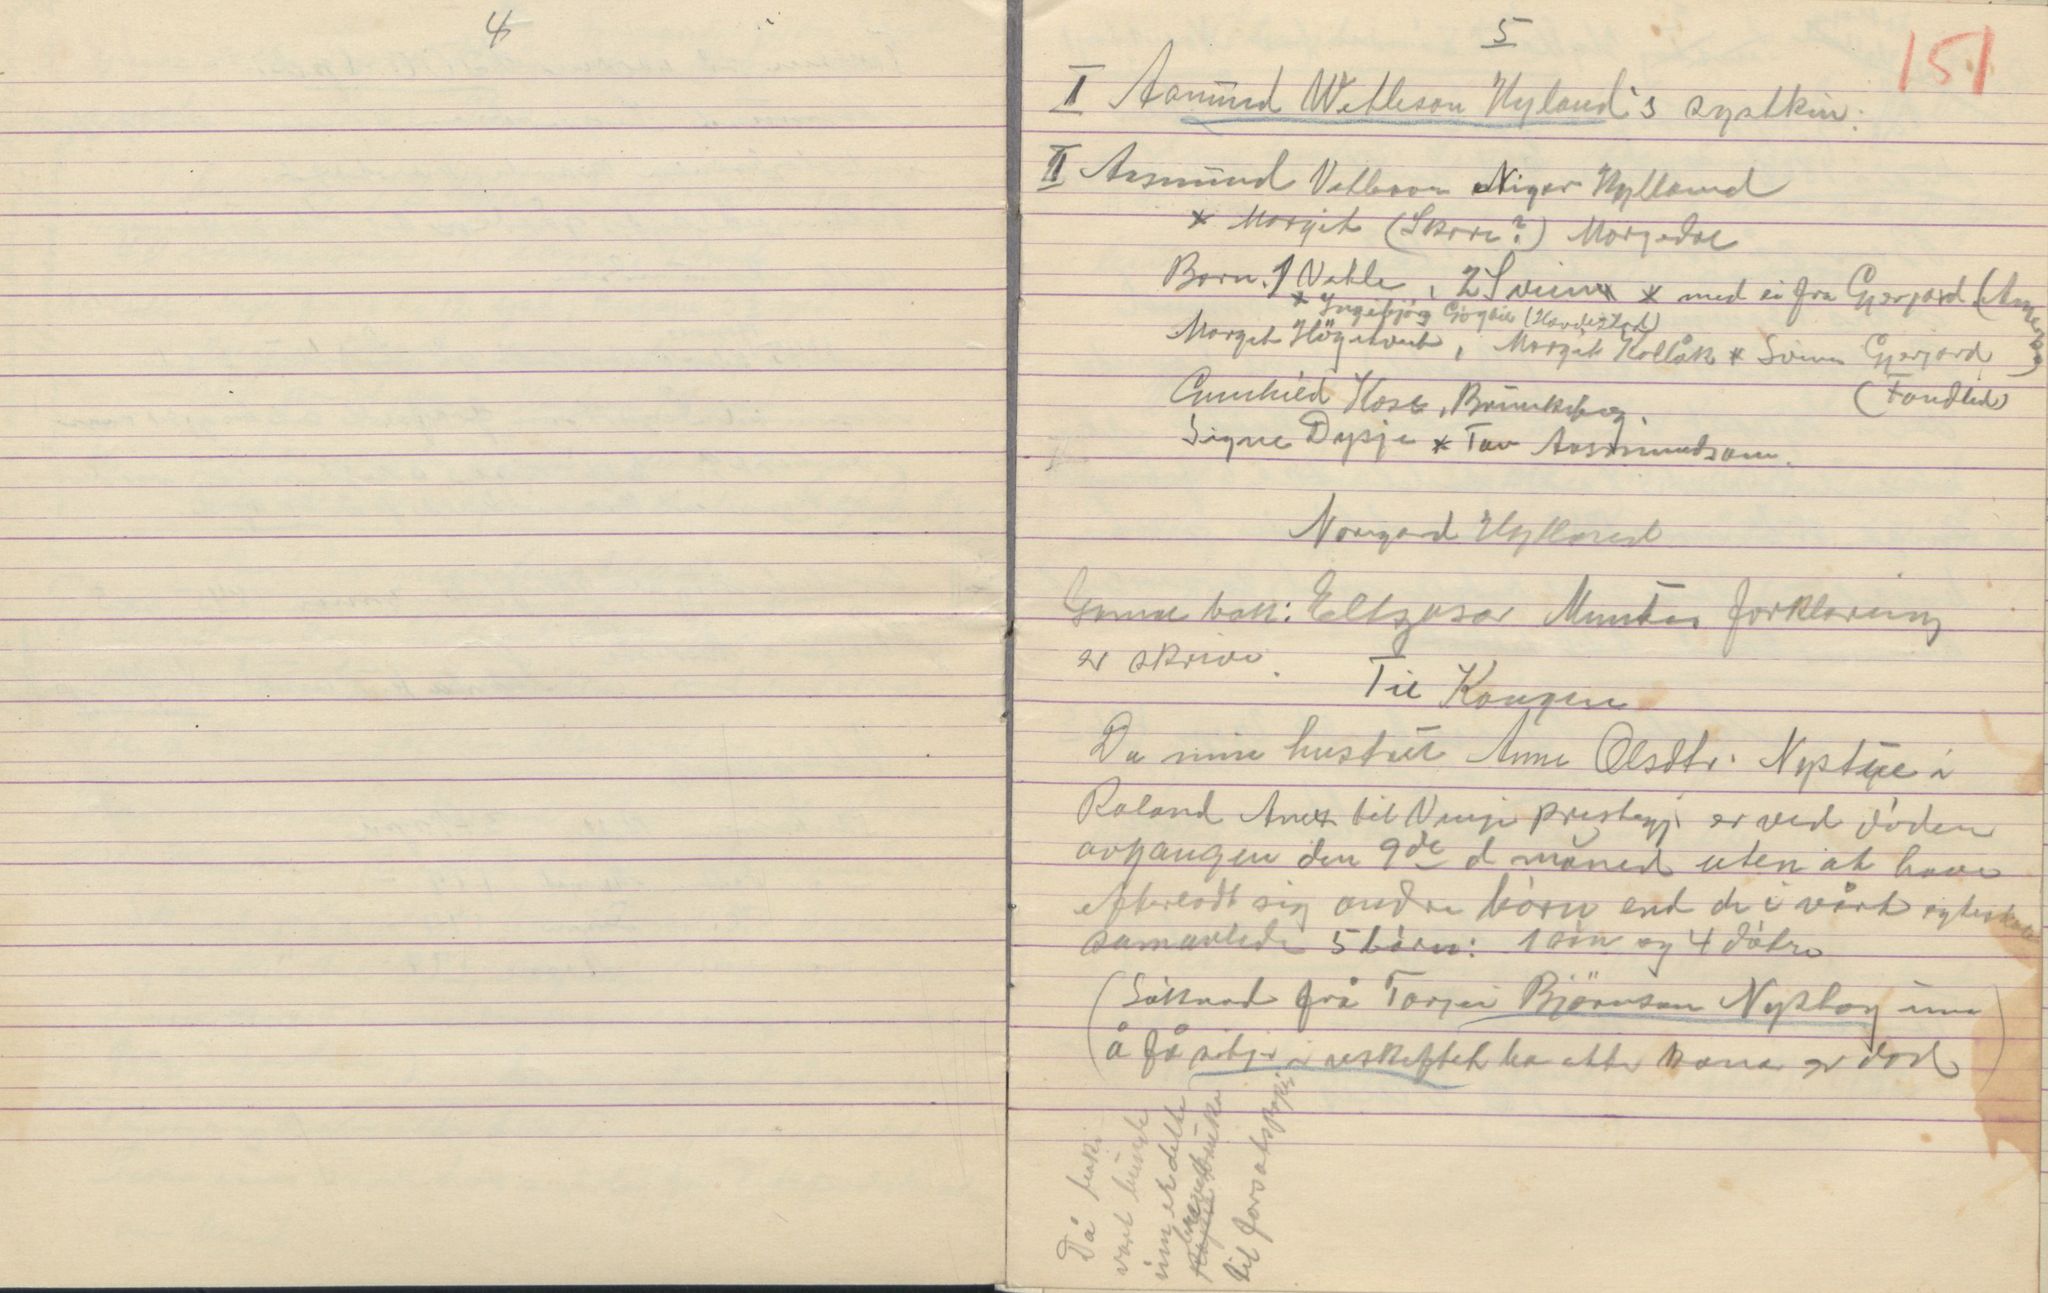 4
5
151
I Aamund Wetleson Hyland's systkin:
II Aasmund Vetleson Nigar Hylland
* Margit (Skore?) Morgedal
Born. 1 Vetle, 2 Svein * med ei fra Gjerjord
* Ingebjørg (Hardestad)
Margit Høgetveit, Margit Kollåk * Svein Gjerjord
Gunhild Kose, Brunkeberg.
Signe Dysje * Tov Aasmundson.
Norgard Hylland
Gamal bok: Eltzasar forklaring
er skrivi.
Til Kongen
Da min hustru Anne Olsdtr. Nystue i
Roland Anex til Vinje prestegj. er ved døden
avgangen den 9de d måned uten at have
efterladt sig andre børn end de i vårt egteskab
samavlede 5 børn: 1 søn og 4 døtre
(Søknad frå Torjei Björnson Nystog um
å få sitja i uskiftet bo etter kona er død)
Då boki
vart bundi
inn er dette
brevet bruka
til forsatspapir